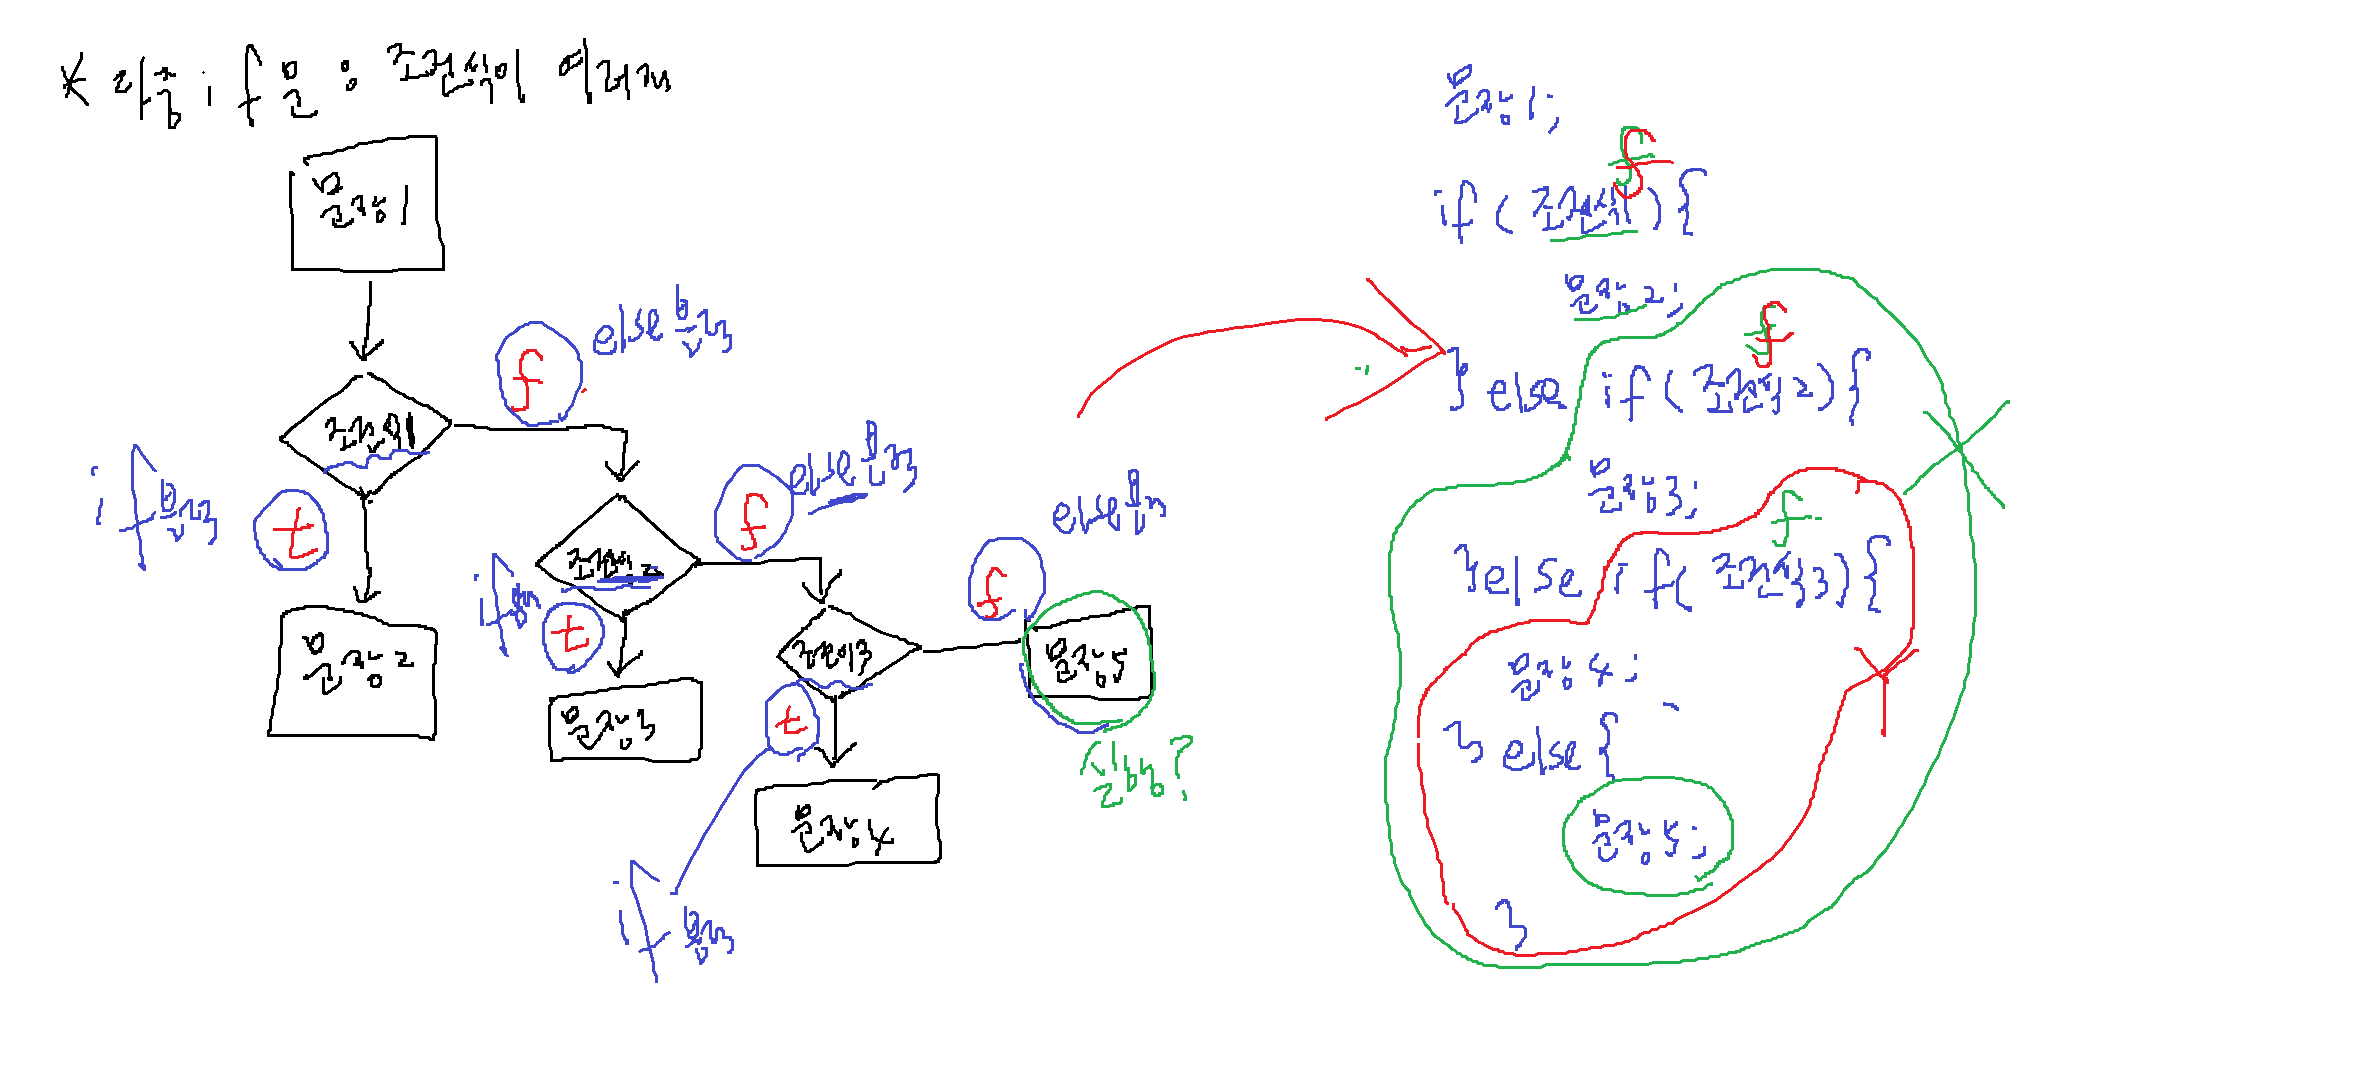 * 다중 if문 : 조건식이 여러개
문장1
조건식1
f
else블럭
if블럭
t
문장2
조건식2
f
else블럭
if블럭
t
문장3
조건식3
f
else블럭
t
if블럭
문장4
문장5
실행?
문장1;
f
if (조건식1) {
문장2;
f
} else if (조건식2) {
문장3;
f
} else if (조건식3) {
문장4;
} else {
문장5;
}